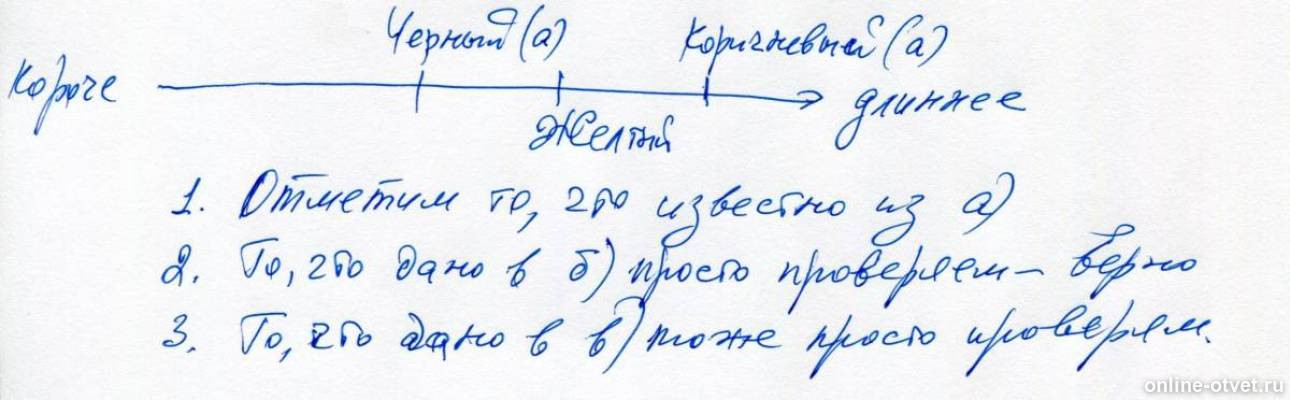 Черный (а) Коричневый (а)
Короче длиннее
Желтый
1. Отметим то, что известно из а)
2. То, что дано в б) просто проверяем - верно
3. То, что дано в в) тоже просто проверям.
online-otvet.ru